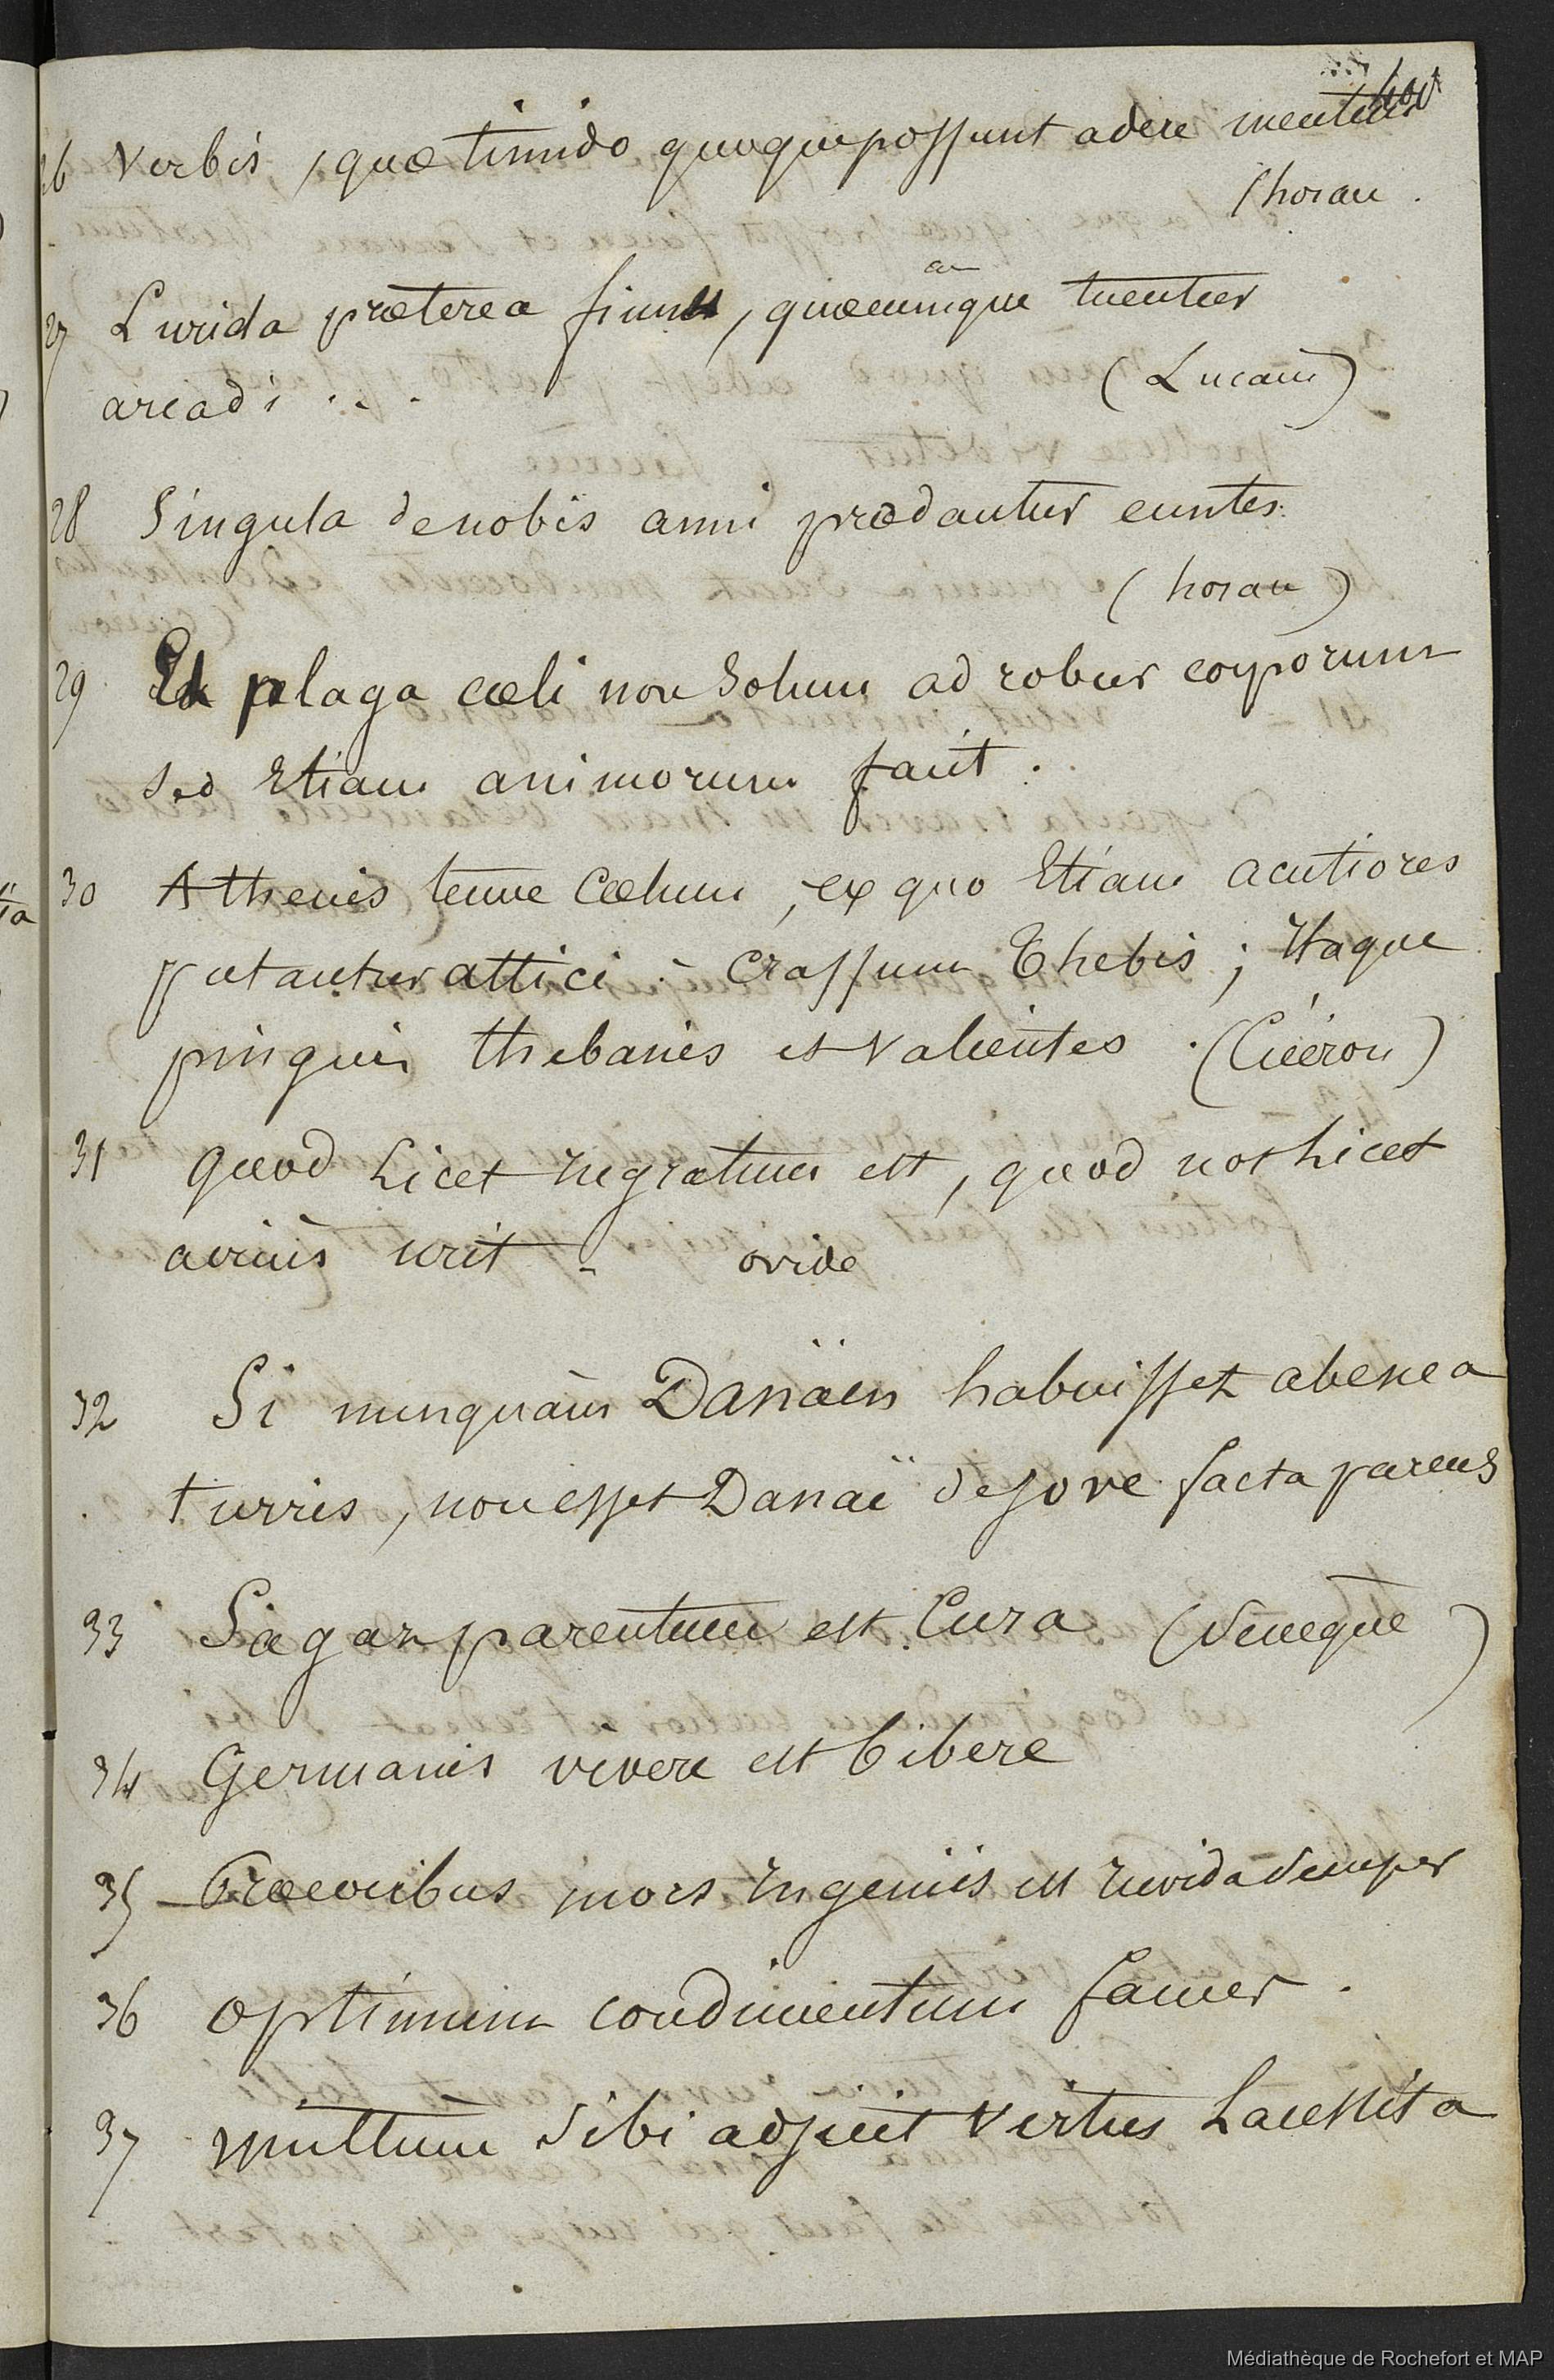 26 Verbis, quæ timido quoque possunt adere mentem
(horace.
27 Lurida præterea fiunt, quæcumque tuentur
arcadi . . .
(Lucain)
28 Singula de nobis anni prædantur euntes.
(horace)
29 Et plaga cœli non solum ad robur corporum
sed Etiam animorum facit.
30 Athenis tenue Cœlum, ex quo Etiam acutiores
putantur attici - Crassum Thebis; Itaque
pinguis thebanis et valentes. (Cicéron)
31 quod Licet ingratum est, quod non Licet
acriùs urit - ovide
32 Si nunquàm Danäen habuisset ahenea
turris, non esset Danaë de Jove facta parens
33 Sagax parentum est Cura (Seneque)
34 Germanis vivere est bibere
35 Præcocibus mors Ingeniis est Invida Semper
36 optimum condimentum fames.
37 multum Sibi adjicit virtus Lacessita
Médiathèque de Rochefort et MAP